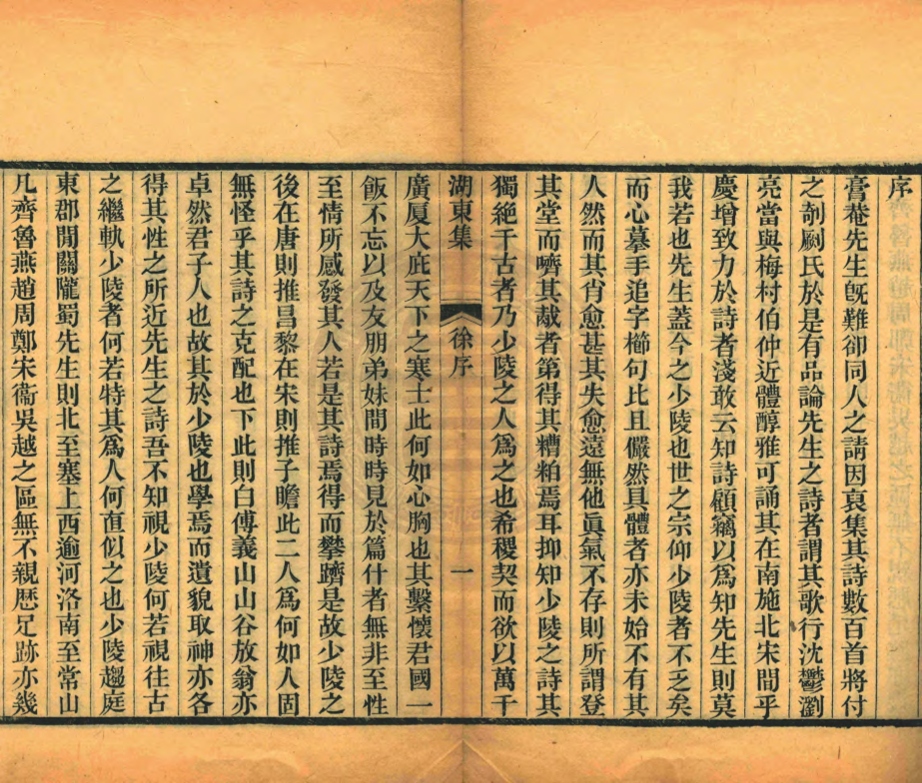 序
膏菴先生旣難卻同人之請因裒集其詩數百首將付
之剞劂氏於是有品論先生之詩者謂其歌行沈鬱瀏
亮當與梅村伯仲近體醇雅可誦其在南施北宋間乎
慶增致力於詩者淺敢云知詩顧竊以爲知先生則莫
我若也先生蓋今之少陵也世之宗仰少陵者不乏矣
而心摹手追字櫛句比且儼然具體者亦未始不有其
人然而其肖愈甚其失愈遠無他眞氣不存則所謂登
其堂而嚌其胾者第得其糟粕焉耳抑知少陵之詩其
獨絶千古者乃少陵之人爲之也希稷契而欲以萬千
湖東集
徐序
一
廣厦大庇天下之寒士此何如心胸也其繫懷君國一
飯不忘以及友朋弟妹間時時見於篇什者無非至性
至情所感發其人若是其詩焉得而攀躋是故少陵之
後在唐則推昌黎在宋則推子瞻此二人爲何如人固
無怪乎其詩之克配也下此則白傅義山山谷放翁亦
卓然君子人也故其於少陵也學焉而遺貌取神亦各
得其性之所近先生之詩吾不知視少陵何若視往古
之繼軌少陵者何若特其爲人何酷似之也少陵趨庭
東郡間關隴蜀先生則北至塞上西逾河洛南至常山
凡齊魯燕趙周鄭宋衞吳越之區無不親歴足跡亦幾